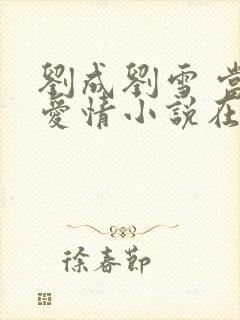 劉成劉雪 當
愛情小說在
徐春節